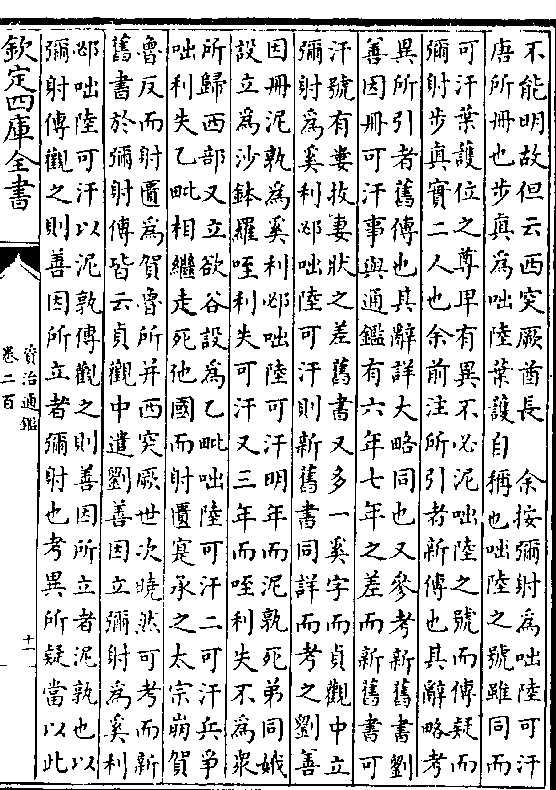 不能明故但云西突厥酋長　余按彌射為咄陸可汗
唐所冊也步真為咄陸葉護自稱也咄陸之號雖同而
可汗葉護位之尊卑有異不必泥咄陸之號而傳疑而
彌射步真實二人也余前注所引者新傳也其辭略考
異所引者舊傳也其辭詳大略同也又參考新舊書劉
善因冊可汗事與通鑑有六年七年之差而新舊書可
汗號有婁拔妻狀之差舊書又多一奚字而貞觀中立
彌射為奚利邲咄陸可汗則新舊書同詳而考之劉善
因冊泥孰為奚利邲咄陸可汗明年而泥孰死弟同娥
設立為沙鉢羅咥利失可汗又三年而咥利失不為衆
所歸西部又立欲谷設為乙毗咄陸可汗二可汗兵爭
咄利失乙毗相繼走死他國而射匱寔承之太宗崩賀
魯反而射匱為賀魯所并西突厥世次曉然可考而新
舊書於彌射傳皆云貞觀中遣劉善因立彌射為奚利
邲咄陸可汗以泥孰傳觀之則善因所立者泥孰也以
彌射傳觀之則善因所立者彌射也考異所疑當以此
欽定四庫全書
資治通鑑
卷二百
十一